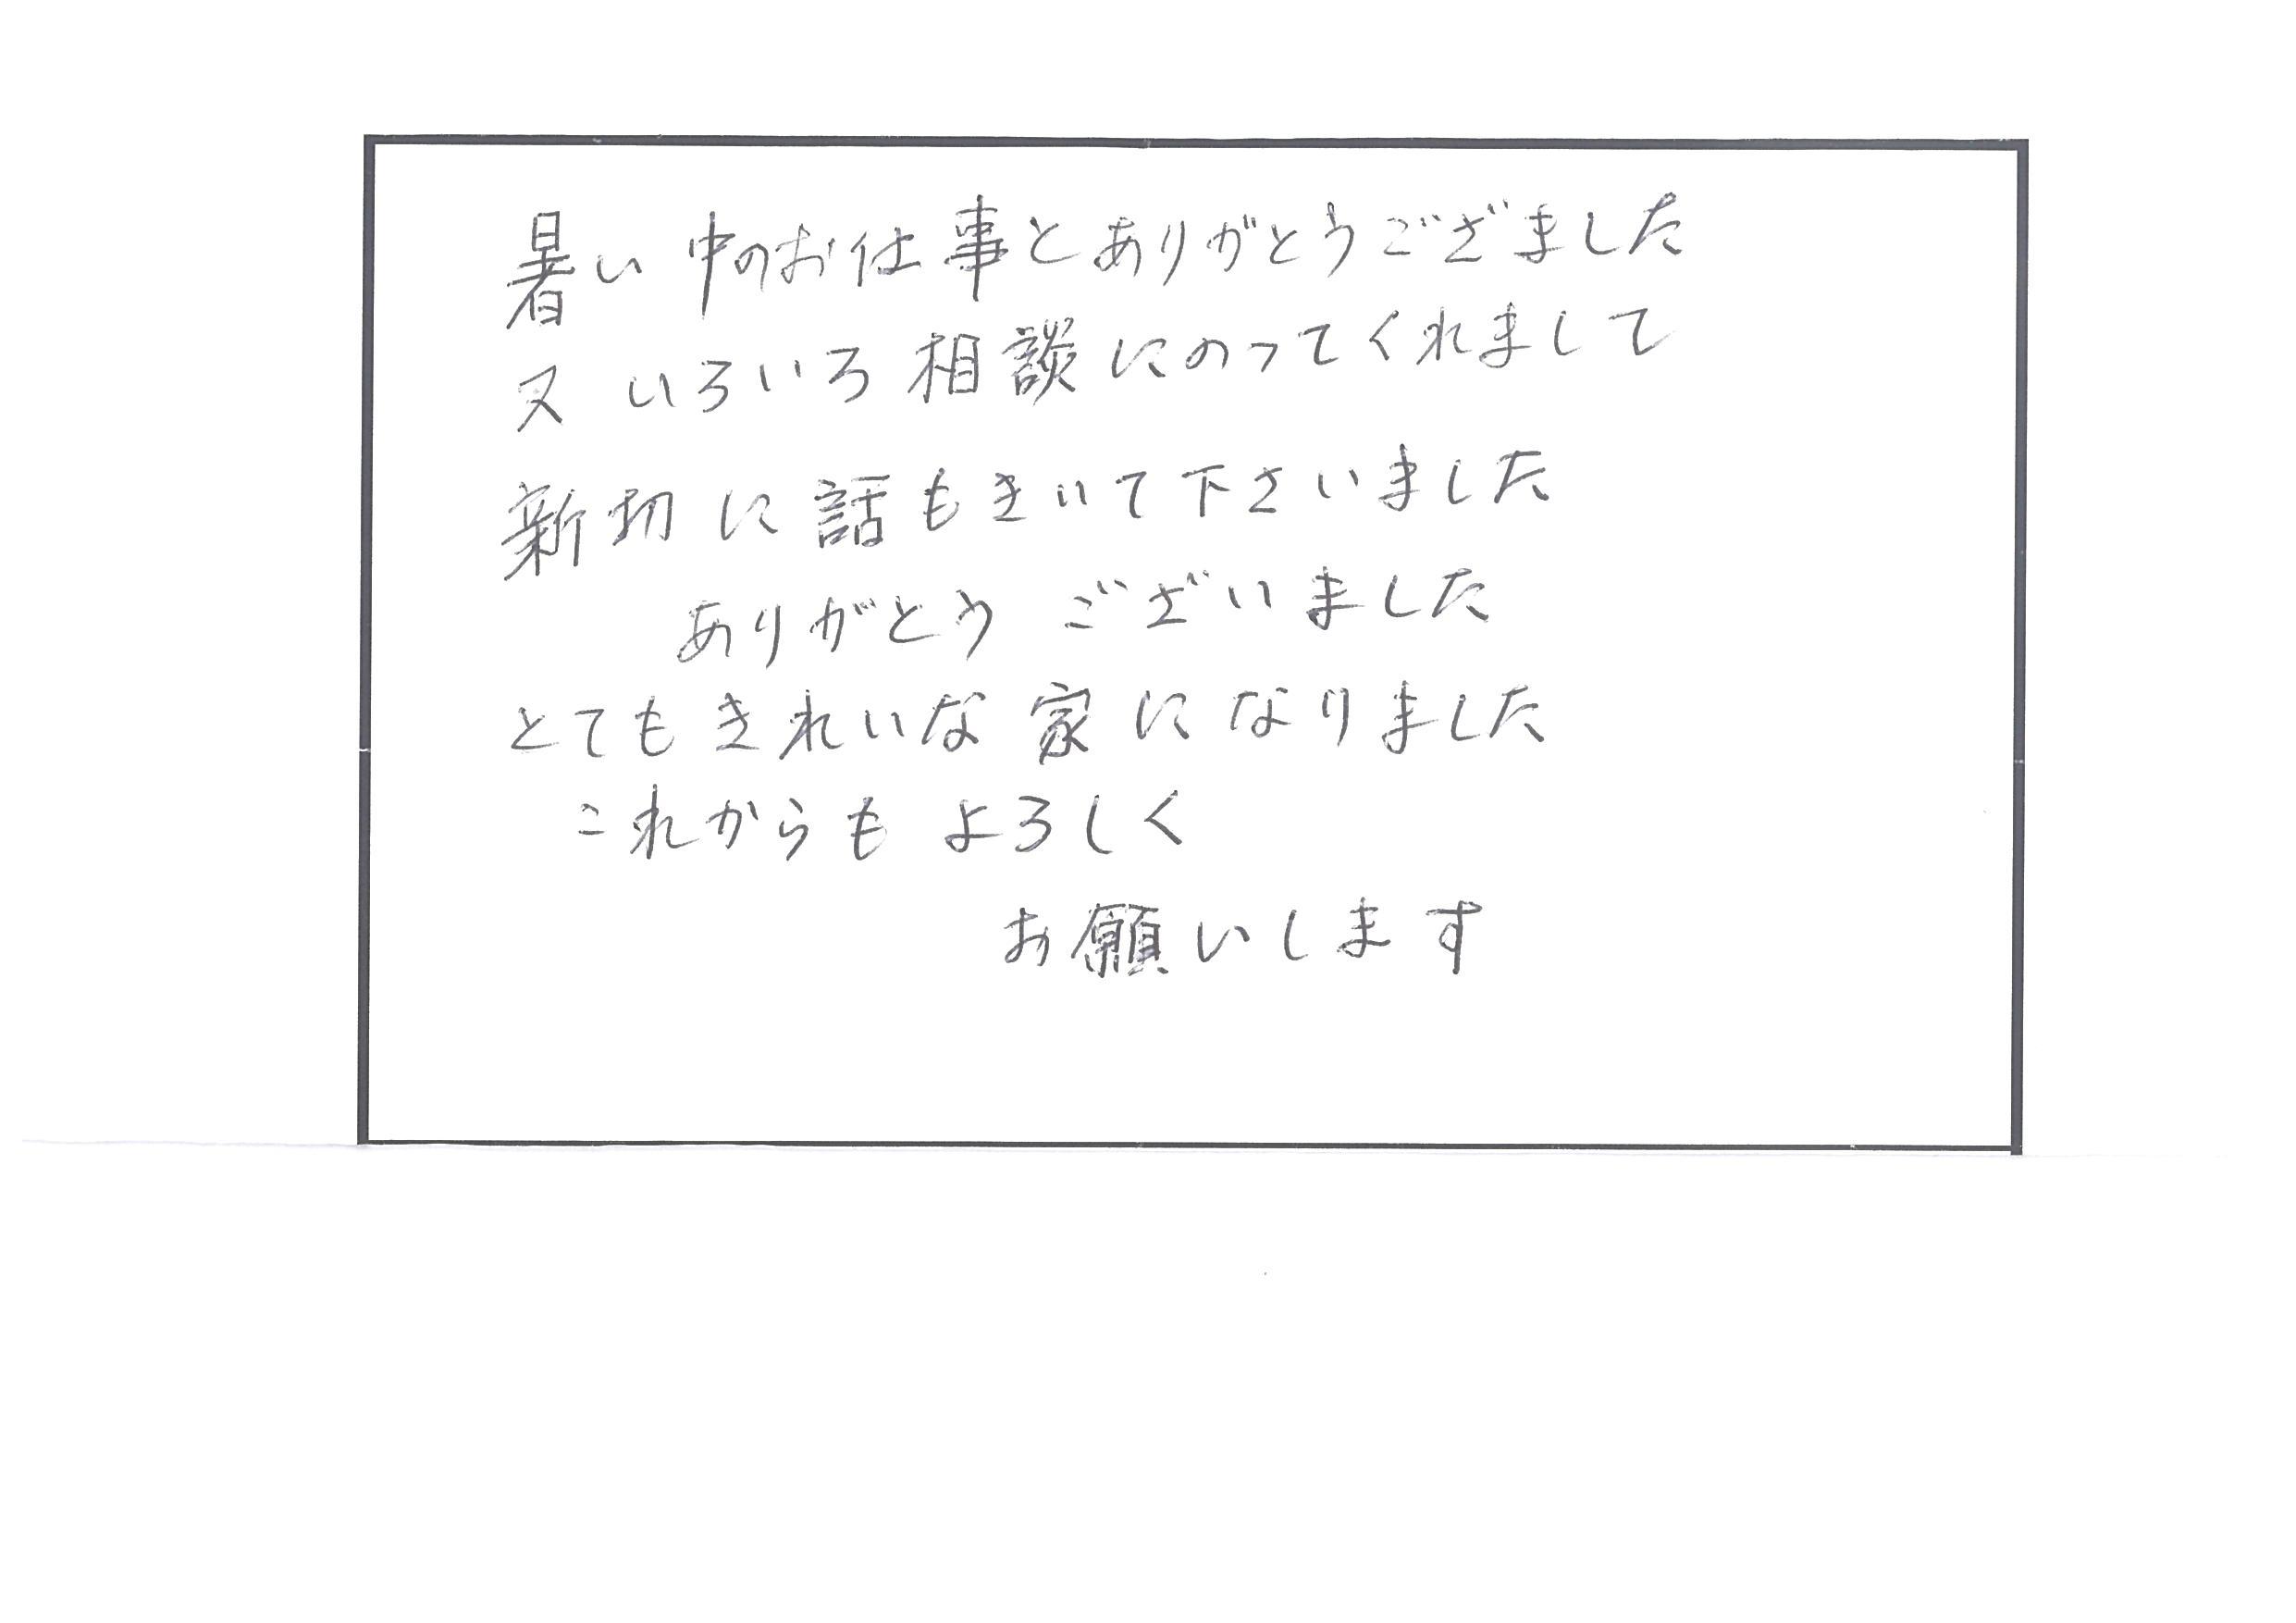 暑い中のお仕事とありがとうござました
又いろいろ相談にのってくれまして
新切に話もきいて下さいました
ありがとうございました
とてもきれいな家になりました
これからもよろしく
お願いします